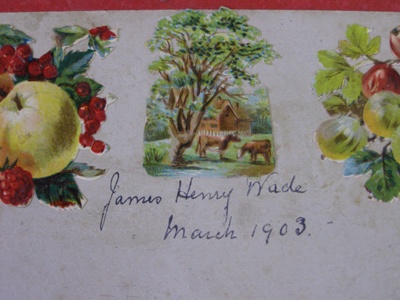 James Henry Wade
March 1903.-